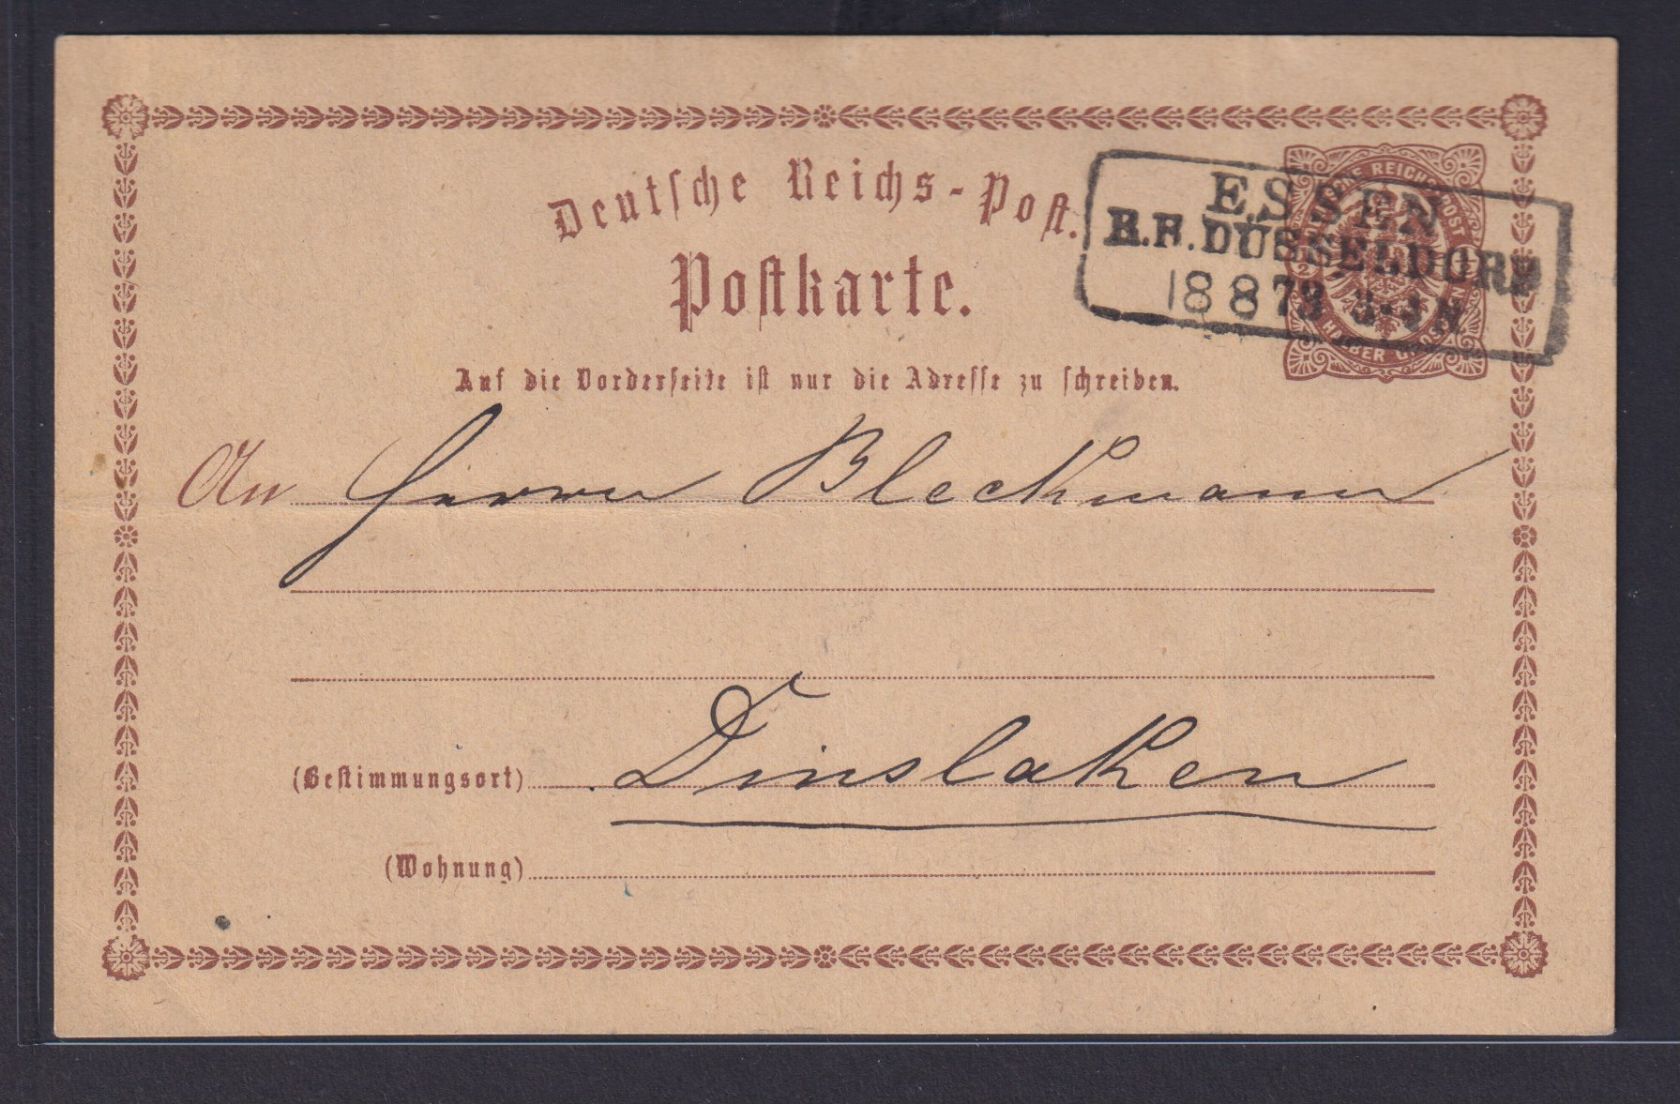 Deutsche Reichs-Post.
Postkarte.
Auf die Vorderseite ist nur die Adresse zu schreiben.
ESSEN
R.B. DÜSSELDORF
18 8 73 3-4 N
DEUTSCHE REICHS-POST
1/2 1/2
HALBER GROSCHEN
An Herrn Bleckmann
(Bestimmungsort) Dinslaken
(Wohnung)